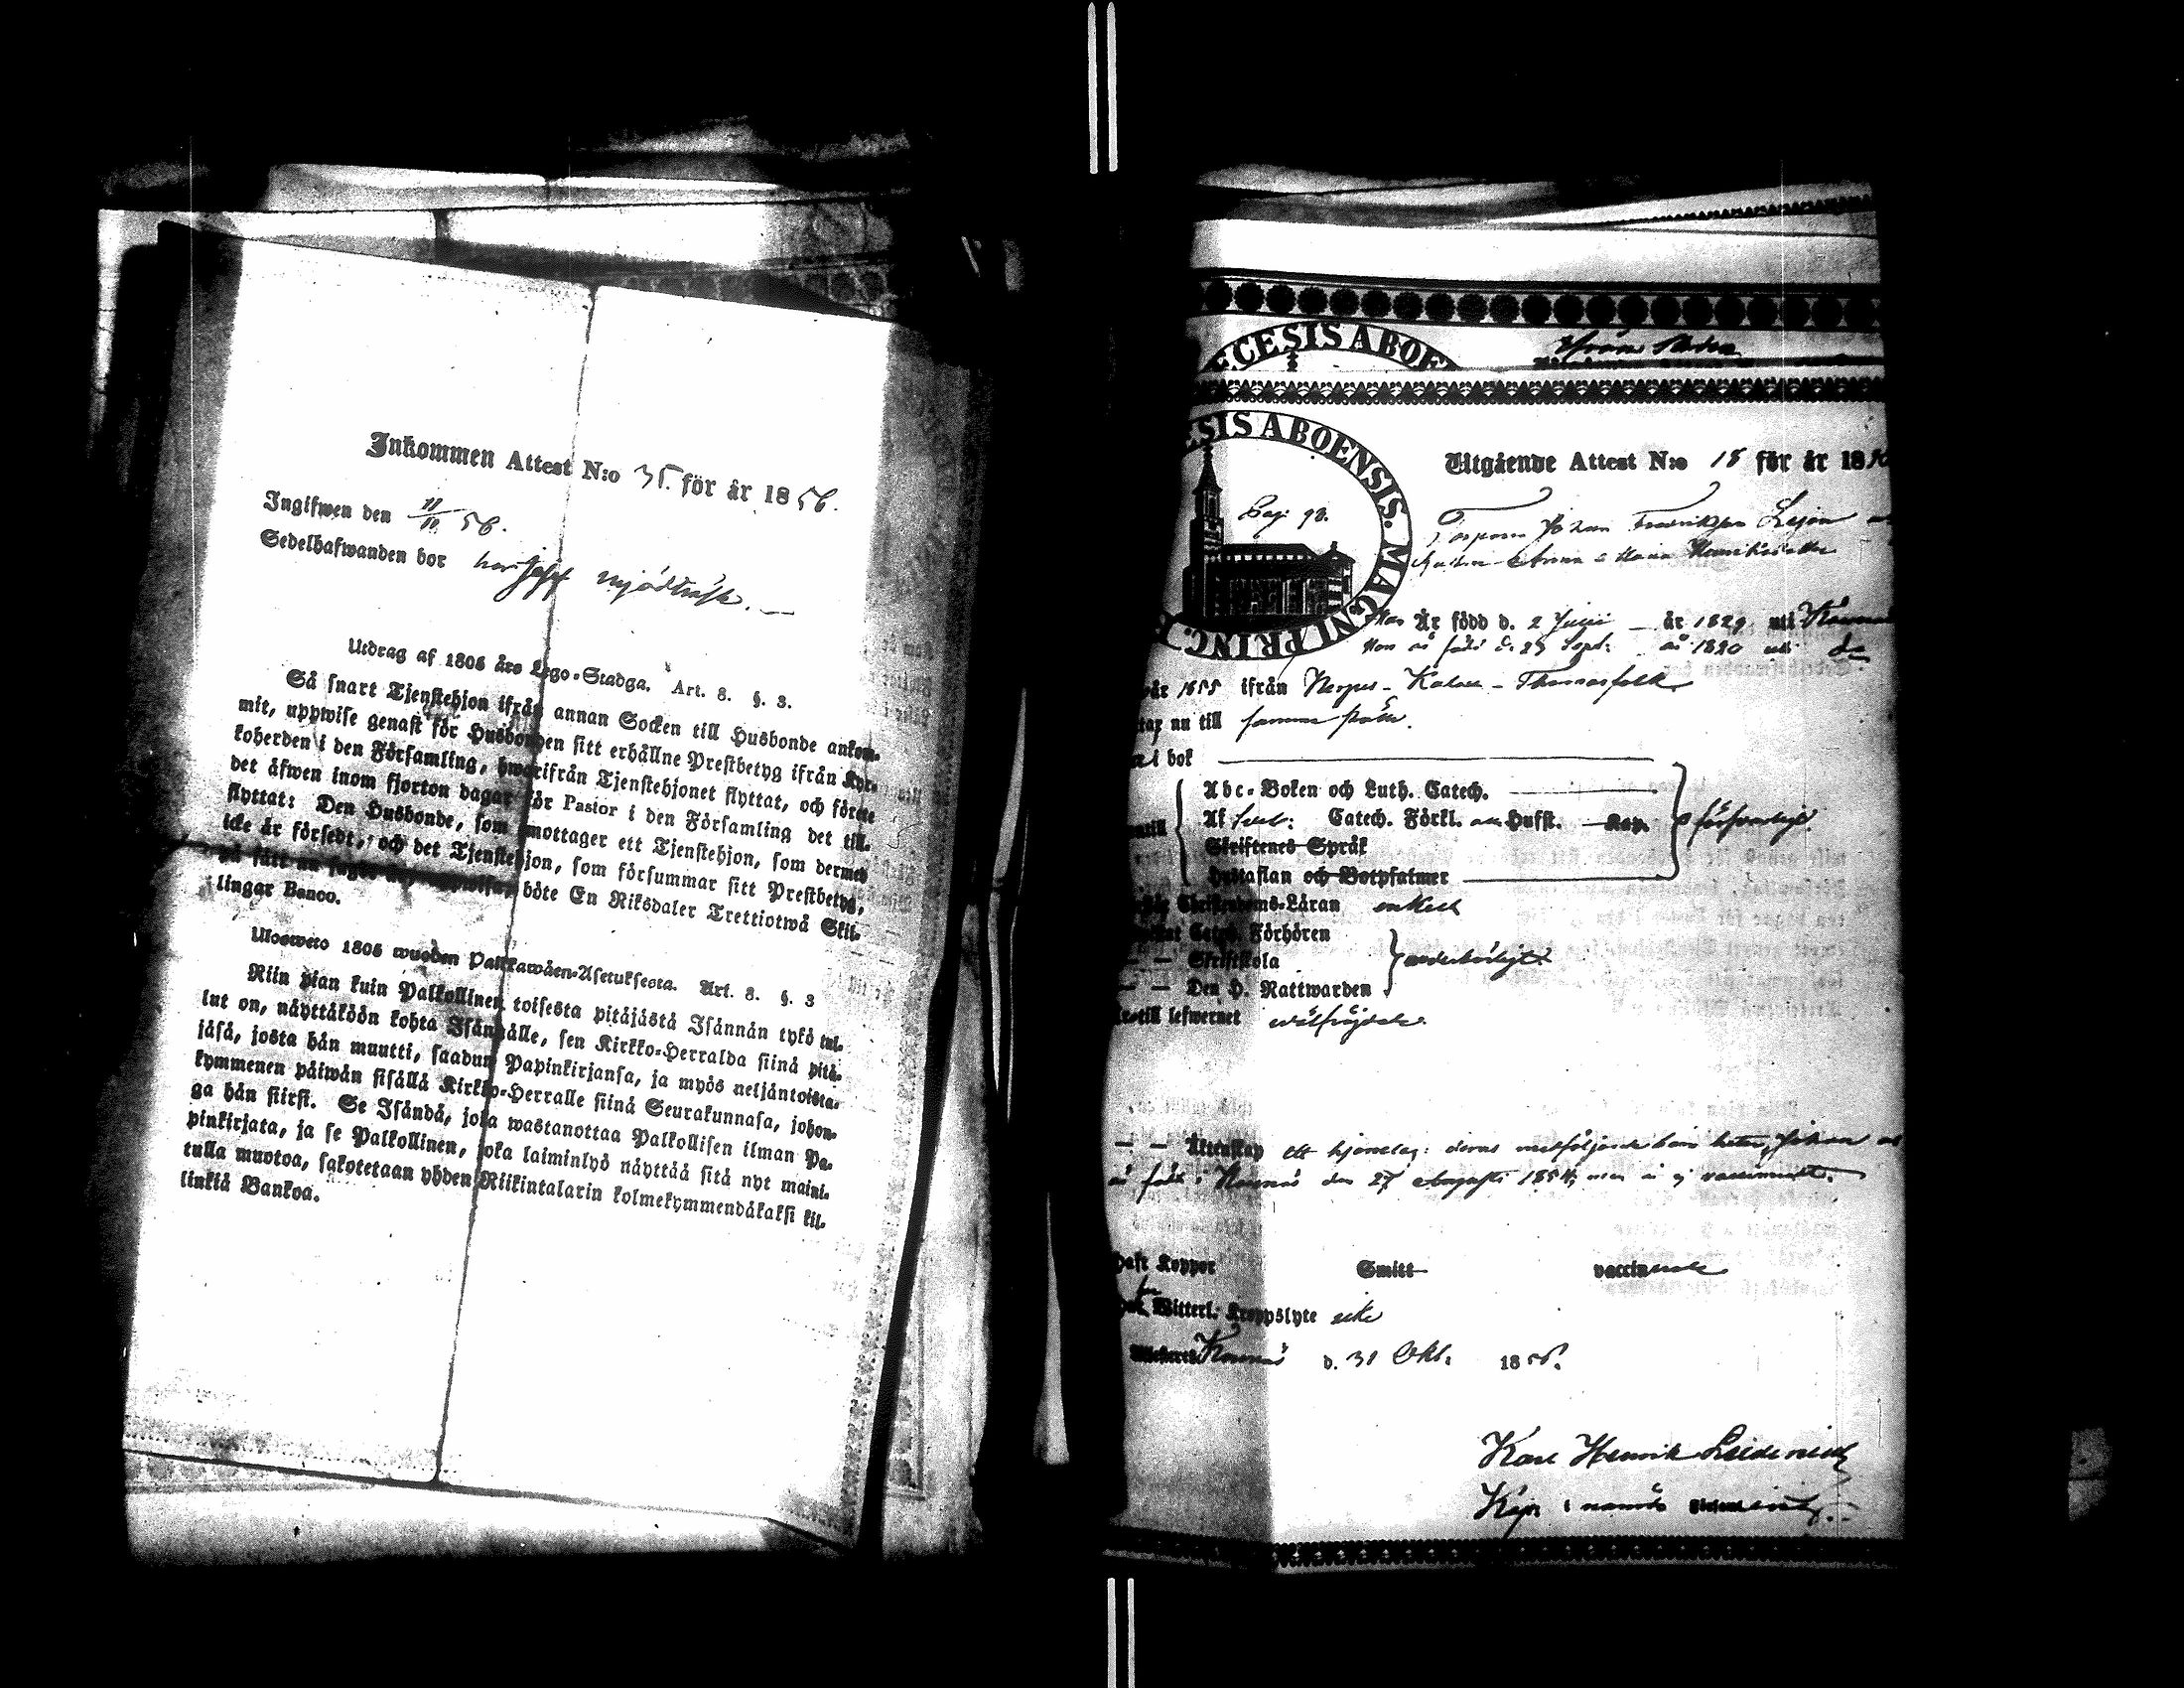 Inkommen Attest N:o 35. för år 1856.
Ingifwen den 11/11 56.
Sedelhafwanden bor hos
Utdrag af 1805 års Lego-Stadga. Art. 8. §. 3.
Så snart Tjenstehjon ifrån annan Socken till Husbonde ankom-
mit, uppwise genast för Husbonden sitt erhållne Prestbetyg ifrån Kyr-
koherden i den Församling, hwarifrån Tjenstehjonet flyttat, och förete
det äfwen inom fjorton dagar för Pastor i den Församling det till-
flyttat: Den Husbonde, som emottager ett Tjenstehjon, som dermed
icke är försedt, och det Tjenstehjon, som försummar sitt Prestbetyg,
på sätt nu sagdt är, uppwisa, böte En Riksdaler Trettiotwå Skil-
lingar Banco.
Ulosweto 1805 wuoden Palkkawäen-Asetuksesta. Art. 8. §. 3
Niin pian kuin Palkollinen toisesta pitäjästä Isännän tykö tul-
lut on, näyttäköön kohta Isännälle, sen Kirkko-Herralda siinä pitä-
jäsä, josta hän muutti, saadun Papinkirjansa, ja myös neljäntoista-
kymmenen päiwän sisällä Kirkko-Herralle siinä Seurakunnasa, johon-
ga hän siirsi. Se Isändä, joka wastanottaa Palkollisen ilman Pa-
pinkirjata, ja se Palkollinen, joka laiminlyö näyttää sitä nyt maini-
tulla muotoa, sakotetaan yhden Riikintalarin kolmekymmendäkaksi kil-
linkiä Bankoa.
ECESIS ABOE
ESIS ABOENSIS. MAGNI PRINC.
Pag. 93.
Utgående Attest N:o 18 för år 18
Torparn Johan Fredriksson Lejon
hustru Anna Maria Henriksdotter
Han Är född d. 2 Julii – år 1829 uti
Hon är född d. 23 Sept: år 1820 uti do
år 1855 ifrån Nerpes – Kalax – Thomasfolk
tar nu till samma ställe.
i bok
Abc-Boken och Luth. Catech.
Af Catech. Förkl. Husst. Kap.
Skriftenes Språk
Hustaflan och Botpsalmer
försvarligt
Christendoms-Läran enkelt
Catech. Förhören
– – Skriftskola
– – Den H. Nattwarden
wederbörligt
till lefwernet wälfrejdade
– – Äktenskap ett hjonelag: deras medföljande barn heter Johan
är född i den 27 Augusti 1854, men är ej vaccinerat.
haft Koppor Smitt vaccinerade
Witterl. Kroppslyte icke
d. 31 Okt. 1856.
Karl Henrik
Kpn i